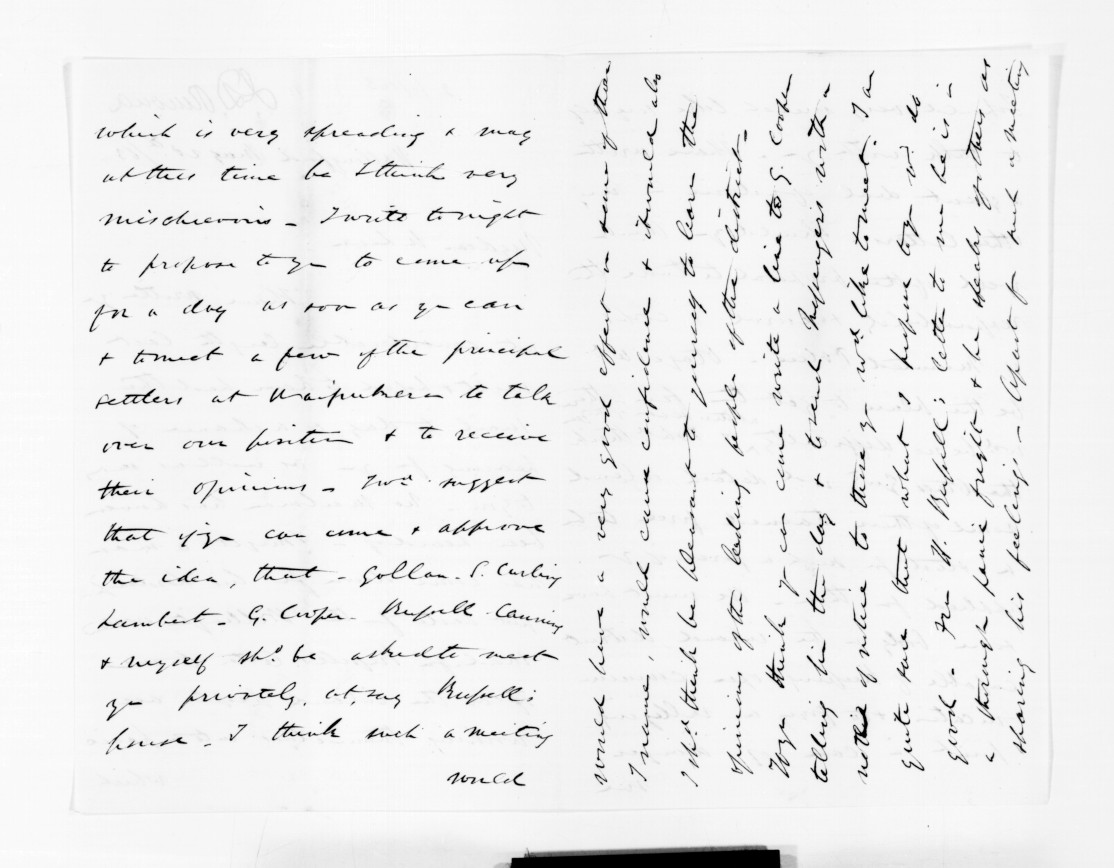 which is very spreading & may
at this time be I think very
mischievous - I write tonight
to propose to yu to come up
for a day as soon as yu can
& to meet a few of the principal
settlers at Waipukurau to talk
over our position & to receive
their opinions - I wd. suggest
that if yu can come & approve
the idea, that - Gollan - S. Curling
Lambert - G. Cooper - Russell - Canning
& myself shd. be asked to meet
yu privately, at, say Russell's
house - I think such a meeting
would
would have a very good effect in some of those
I name, would cause confidence & it would also
I shd. think be pleasant to yourself to learn the
opinions of the leading people of the district -
If yu think yu can come write a line to G Cooper
telling him the day & to send Messengers with a
note of notice to those yu wd. like to meet. I am
quite sure that what I propose to yu wd. do
good - From H. Russell's letter to me he is in
a strange panic fright & he speaks of others as
sharing his feelings - Apart of such a meeting